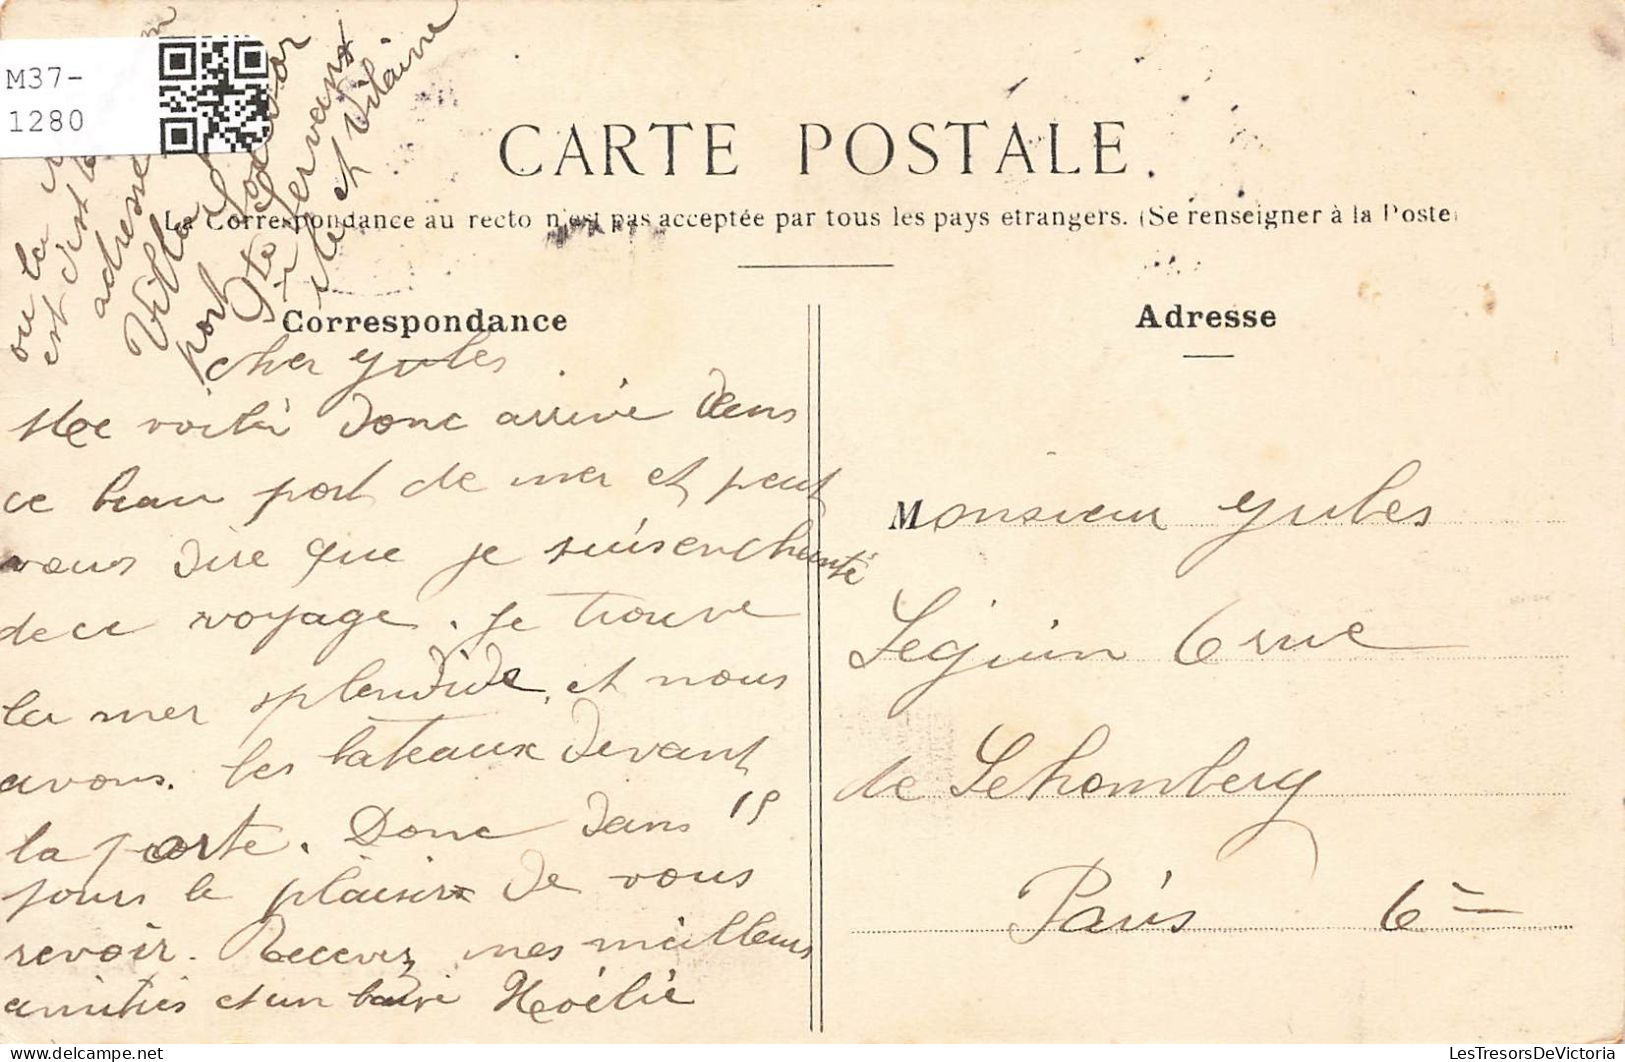 M37-
1280
ou la
est c'est
adresse
Villa
port
Ste Servans
ile et Vilaine
CARTE POSTALE
La Correspondance au recto n'est pas acceptée par tous les pays etrangers. (Se renseigner à la Poste)
Correspondance
cher Yules
Me voilà donc arrivé dans
ce beau port de mer et peut
vous dire que je suis enchanté
de ce voyage. Je trouve
la mer splendide, et nous
avons. les bateaux devant
la porte. Donc dans 15
jours le plaisir de vous
revoir. Recevez mes meilleurs
amitiés et un Noélie
Adresse
Monsieur Yules
Seguin 6 rue
de Schomberg
Paris 6e
LesTresorsDeVictoria.com